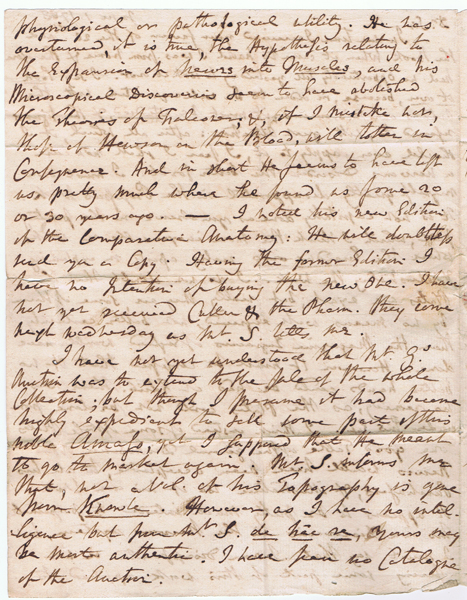 physiological or pathological utility. He has
overturned, it is true, the Hypothesis relating to
the Expansion of nerves into Muscles, and his
Microscopical Discoveries seem to have abolished
the Theories of &, if I mistake not,
those of Hewson on the Blood, will totter in
Consequence. And in short He seems to have left
us pretty much where He found us some 20
or 30 years ago — I noted his new Edition
of the Comparative Anatomy: He will doubtless
send you a Copy. Having the former Edition I
have no Intention of buying the new One. I have
not yet received Cullen & the Pharm. they come
next Wednesday as Mr. S. tells me.
I have not yet understood that Mr. G's
Auction was to extend to the sale of the whole
Collection; but though I presume it had become
highly expedient to sell some part of this
noble Amass, yet I supposed that He meant
to go to market again. Mr. S. informs me
that, not a Vol. of his Topography is gone
from Knowle. However as I have no intel
ligence but from Mr. S. de hac re, yours may
be more authentic. I have seen no Catalogue
of the Auction.